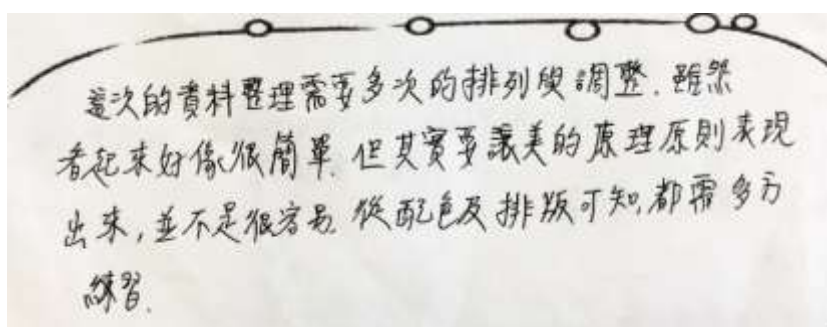 這次的資料整理需要多次的排列與調整.雖然
看起來好像很簡單.但其實要讓美的原理原則表現
出來,並不是很容易.從配色及排版可知,都需多方
練習.